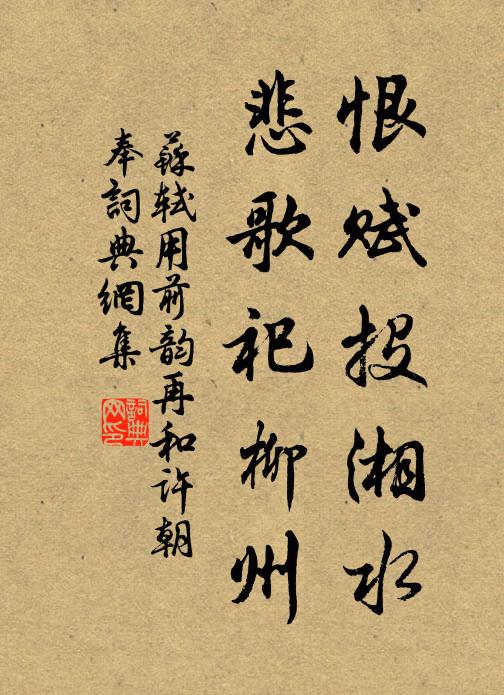 恨赋投湘水
悲歌祀柳州
蘇軾用前韵再和許朝
奉詞典網集
詞典网印